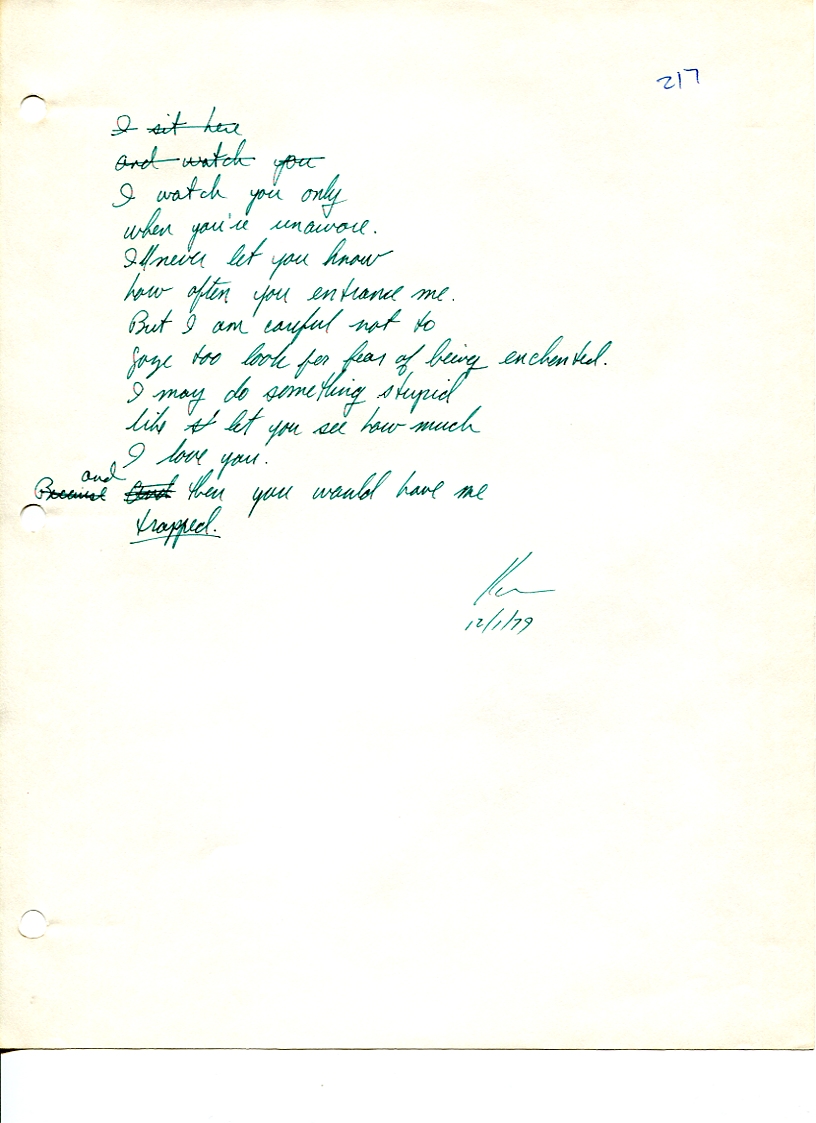 217
I sit here
and watch you
I watch you only
when you're unaware.
I'll never let you know
how often you entrance me.
But I am careful not to
gaze too look for fear of being enchanted.
I may do something stupid
like let you see how much
I love you.
and
Because And then you would have me
trapped.
12/1/79